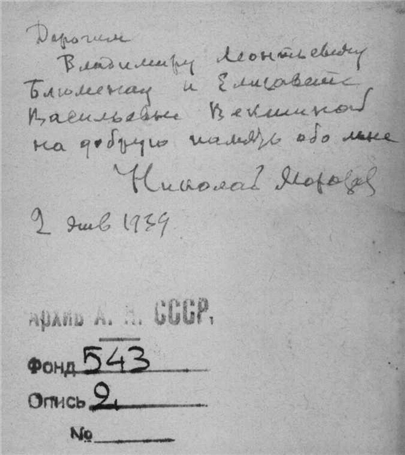 Дорогим
Владимиру Леонтьевичу
Блюменау и Елисавете
Васильевне Векшиной
на добрую память обо мне
Николай Морозов
2 янв 1939
Архив А. Н. СССР.
Фонд 543
Опись 2
№